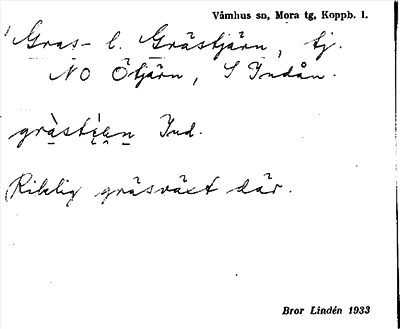 Våmhus sn, Mora tg, Koppb. l.
Gras- l. Grästjärn, tj.
NO Ötjärn, S Indån.
Ind.
(Riklig gräsväxt där.
Bror Lindén 1933